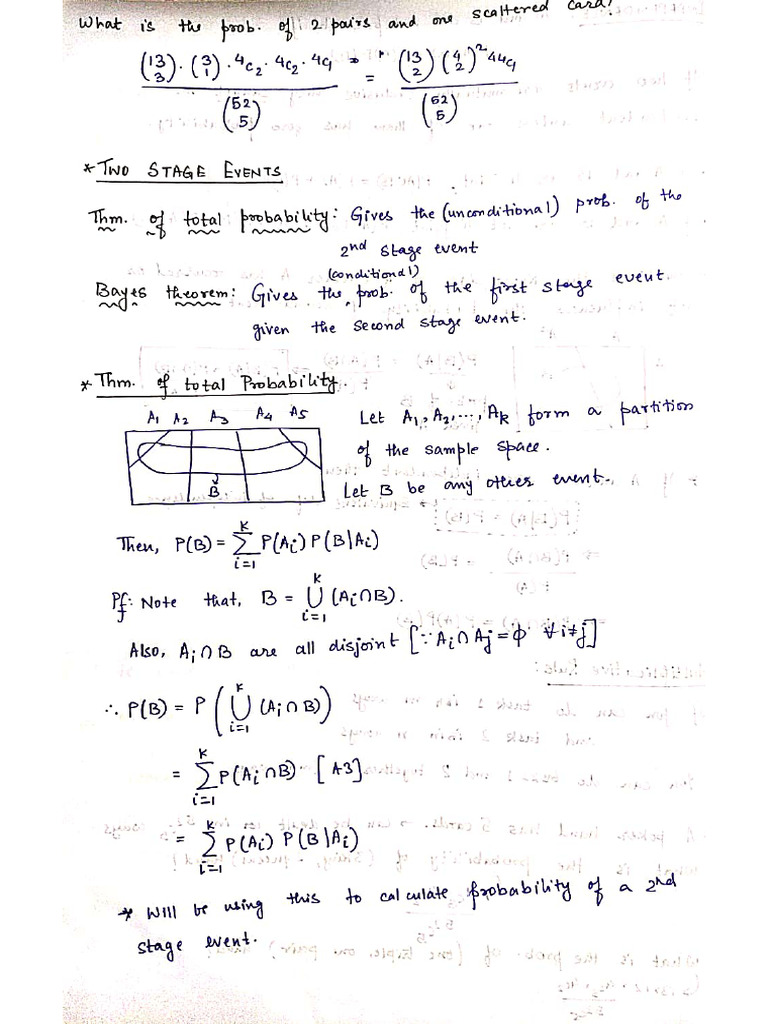 What is the prob. of 2 pairs and one scattered card?
(13 3) · (3 1) · 4C2 · 4C2 · 4C1 / (52 5) = (13 2) (4 2)² 44C1 / (52 5)
* TWO STAGE EVENTS
Thm. of total probability: Gives the (unconditional) prob. of the
2nd stage event
(conditional)
Bayes theorem: Gives the prob. of the first stage event
given the second stage event.
* Thm. of total Probability.
A1 A2 A3 A4 A5
Let A1, A2, ..., Ak form a partition
of the sample space.
B
Let B be any other event.
Then, P(B) = Σ_{i=1}^{k} P(Ai) P(B|Ai)
Pf: Note that, B = ∪_{i=1}^{k} (Ai∩B).
Also, Ai∩B are all disjoint [∵ Ai∩Aj = ϕ ∀ i≠j]
∴ P(B) = P ( ∪_{i=1}^{k} (Ai∩B) )
= Σ_{i=1}^{k} P(Ai∩B) · [A3]
= Σ_{i=1}^{k} P(Ai) P(B|Ai)
* Will be using this to calculate probability of a 2nd
stage event.